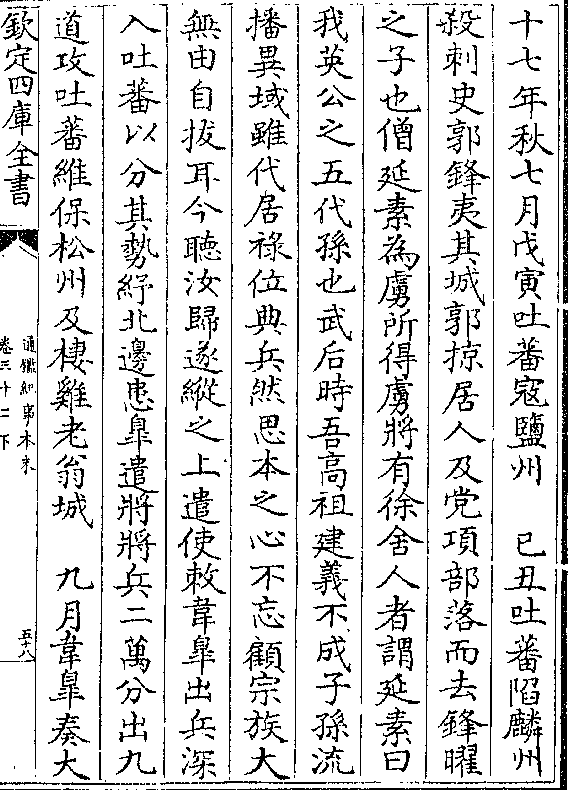 十七年秋七月戊寅吐蕃寇鹽州　己丑吐蕃陷麟州
殺刺史郭鋒夷其城郭掠居人及党項部落而去鋒曜
之子也僧延素為虜所得虜將有徐舍人者謂延素曰
我英公之五代孫也武后時吾高祖建義不成子孫流
播異域雖代居祿位典兵然思本之心不忘顧宗族大
無由自拔耳今聽汝歸遂縱之上遣使敕韋臯出兵深
入吐蕃以分其勢紓北邊患臯遣將將兵二萬分出九
道攻吐蕃維保松州及棲雞老翁城　九月韋臯奏大
欽定四庫全書
通鑑紀事本末
卷三十二下
五十八